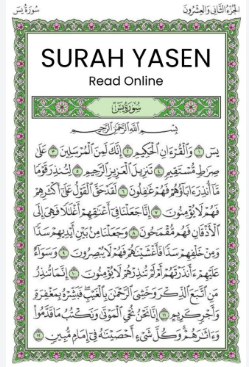 الجزء الثاني والعشرون سورة يس
SURAH YASEN
Read Online
سورة يس
بسم الله الرحمن الرحيم
يس ١ والقرءان الحكيم ٢ إنك لمن المرسلين ٣ على
صرط مستقيم ٤ تنزيل العزيز الرحيم ٥ لتنذر قوما
ما أنذر ءاباؤهم فهم غفلون ٦ لقد حق القول على أكثرهم
فهم لا يؤمنون ٧ إنا جعلنا في أعنقهم أغللا فهى إلى
الأذقان فهم مقمحون ٨ وجعلنا من بين أيديهم سدا
ومن خلفهم سدا فأغشينهم فهم لا يبصرون ٩ وسواء
عليهم ءأنذرتهم أم لم تنذرهم لا يؤمنون ١٠ إنما تنذر
من اتبع الذكر وخشى الرحمن بالغيب فبشره بمغفرة
وأجر كريم ١١ إنا نحن نحى الموتى ونكتب ما قدموا
وءاثرهم وكل شىء أحصينه فى إمام مبين ١٢